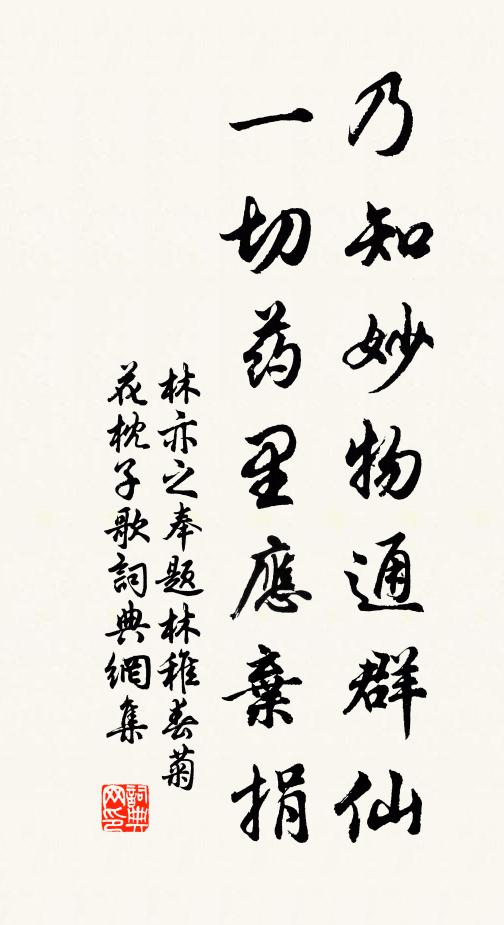 乃知妙物通群仙
一切药里應棄捐
林亦之奉題林稚春菊
花枕子歌詞典網集
詞典网印